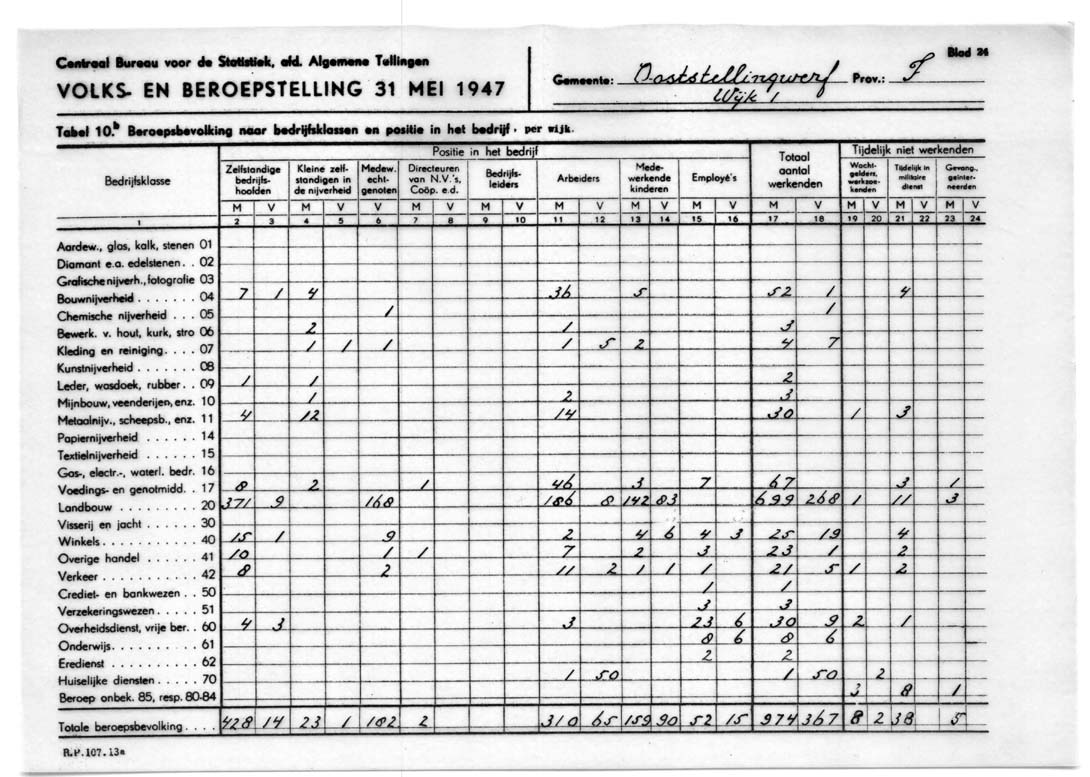 Blad 24
Centraal Bureau voor de Statistiek, afd. Algemene Tellingen
VOLKS- EN BEROEPSTELLING 31 MEI 1947
Gemeente: Ooststellingwerf Prov.: F
Wijk 1
Tabel 10.b Beroepsbevolking naar bedrijfsklassen en positie in het bedrijf, per wijk.
Bedrijfsklasse Positie in het bedrijf Totaal aantal werkenden Tijdelijk niet werkenden
Zelfstandige bedrijfshoofden Kleine zelfstandigen in de nijverheid Medew. echtgenoten Directeuren van N.V.'s, Coöp. e.d. Bedrijfsleiders Arbeiders Medewerkende kinderen Employé's Wachtgelders, werkzoekenden Tijdelijk in militaire dienst Gevang., geïnterneerden
M V M V V M V M V M V M V M V M V M V M V M V
1 2 3 4 5 6 7 8 9 10 11 12 13 14 15 16 17 18 19 20 21 22 23 24
Aardew., glas, kalk, stenen 01
Diamant e.a. edelstenen . . 02
Grafische nijverh., fotografie 03
Bouwnijverheid . . . . . . . 04 7 1 4 36 5 52 1 4
Chemische nijverheid . . . 05 1 1
Bewerk. v. hout, kurk, stro 06 2 1 3
Kleding en reiniging. . . . 07 1 1 1 1 5 2 4 7
Kunstnijverheid . . . . . . 08
Leder, wasdoek, rubber. . 09 1 1 2
Mijnbouw, veenderijen, enz. 10 1 2 3
Metaalnijv., scheepsb., enz. 11 4 12 14 30 1 3
Papiernijverheid . . . . . . 14
Textielnijverheid . . . . . . 15
Gas-, electr.-, waterl. bedr. 16
Voedings- en genotmidd. . 17 8 2 1 46 3 7 67 3 1
Landbouw . . . . . . . . . 20 371 9 168 186 8 142 83 699 268 1 11 3
Visserij en jacht . . . . . . 30
Winkels . . . . . . . . . . 40 15 1 9 2 4 6 4 3 25 19 4
Overige handel . . . . . . 41 10 1 1 7 2 3 23 1 2
Verkeer . . . . . . . . . . 42 8 2 11 2 1 1 1 21 5 1 2
Crediet- en bankwezen . . 50 1 1
Verzekeringswezen. . . . . 51 3 3
Overheidsdienst, vrije ber. . 60 4 3 3 23 6 30 9 2 1
Onderwijs. . . . . . . . . . 61 8 6 8 6
Eredienst . . . . . . . . . 62 2 2
Huiselijke diensten . . . . . 70 1 50 1 50 2
Beroep onbek. 85, resp. 80-84 3 8 1
Totale beroepsbevolking . . . . 428 14 23 1 182 2 310 65 159 90 52 15 974 367 8 2 38 5
R.P.107.13a